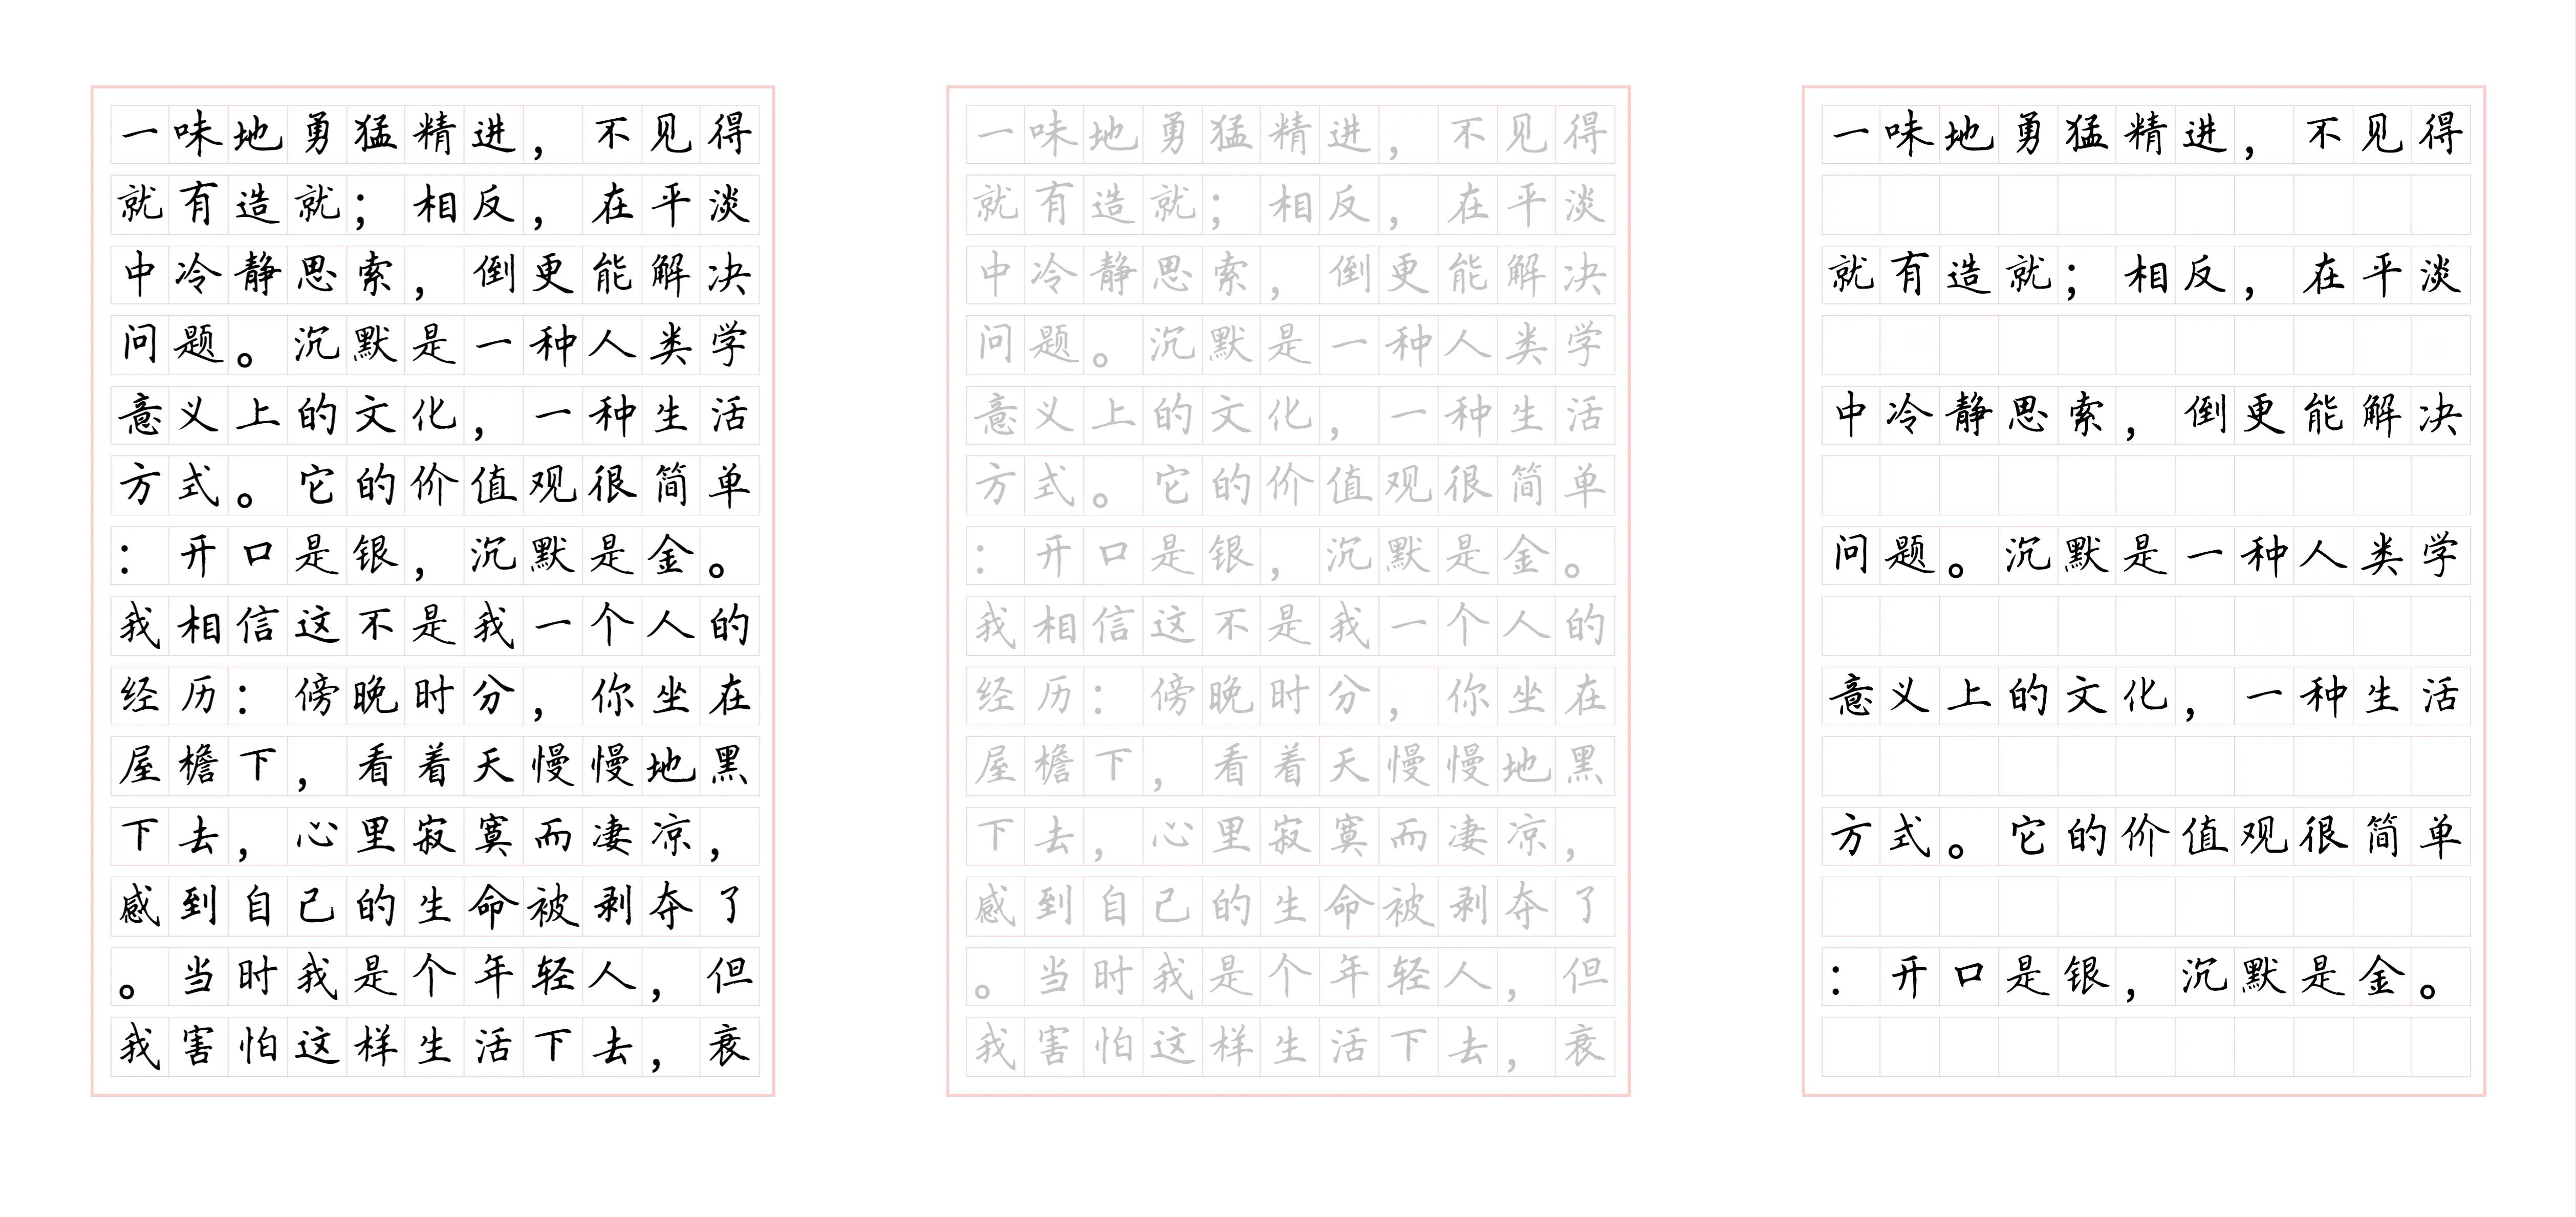 一味地勇猛精进，不见得
就有造就；相反，在平淡
中冷静思索，倒更能解决
问题。沉默是一种人类学
意义上的文化，一种生活
方式。它的价值观很简单
：开口是银，沉默是金。
我相信这不是我一个人的
经历：傍晚时分，你坐在
屋檐下，看着天慢慢地黑
下去，心里寂寞而凄凉，
感到自己的生命被剥夺了
。当时我是个年轻人，但
我害怕这样生活下去，衰
一味地勇猛精进，不见得
就有造就；相反，在平淡
中冷静思索，倒更能解决
问题。沉默是一种人类学
意义上的文化，一种生活
方式。它的价值观很简单
：开口是银，沉默是金。
我相信这不是我一个人的
经历：傍晚时分，你坐在
屋檐下，看着天慢慢地黑
下去，心里寂寞而凄凉，
感到自己的生命被剥夺了
。当时我是个年轻人，但
我害怕这样生活下去，衰
一味地勇猛精进，不见得
就有造就；相反，在平淡
中冷静思索，倒更能解决
问题。沉默是一种人类学
意义上的文化，一种生活
方式。它的价值观很简单
：开口是银，沉默是金。